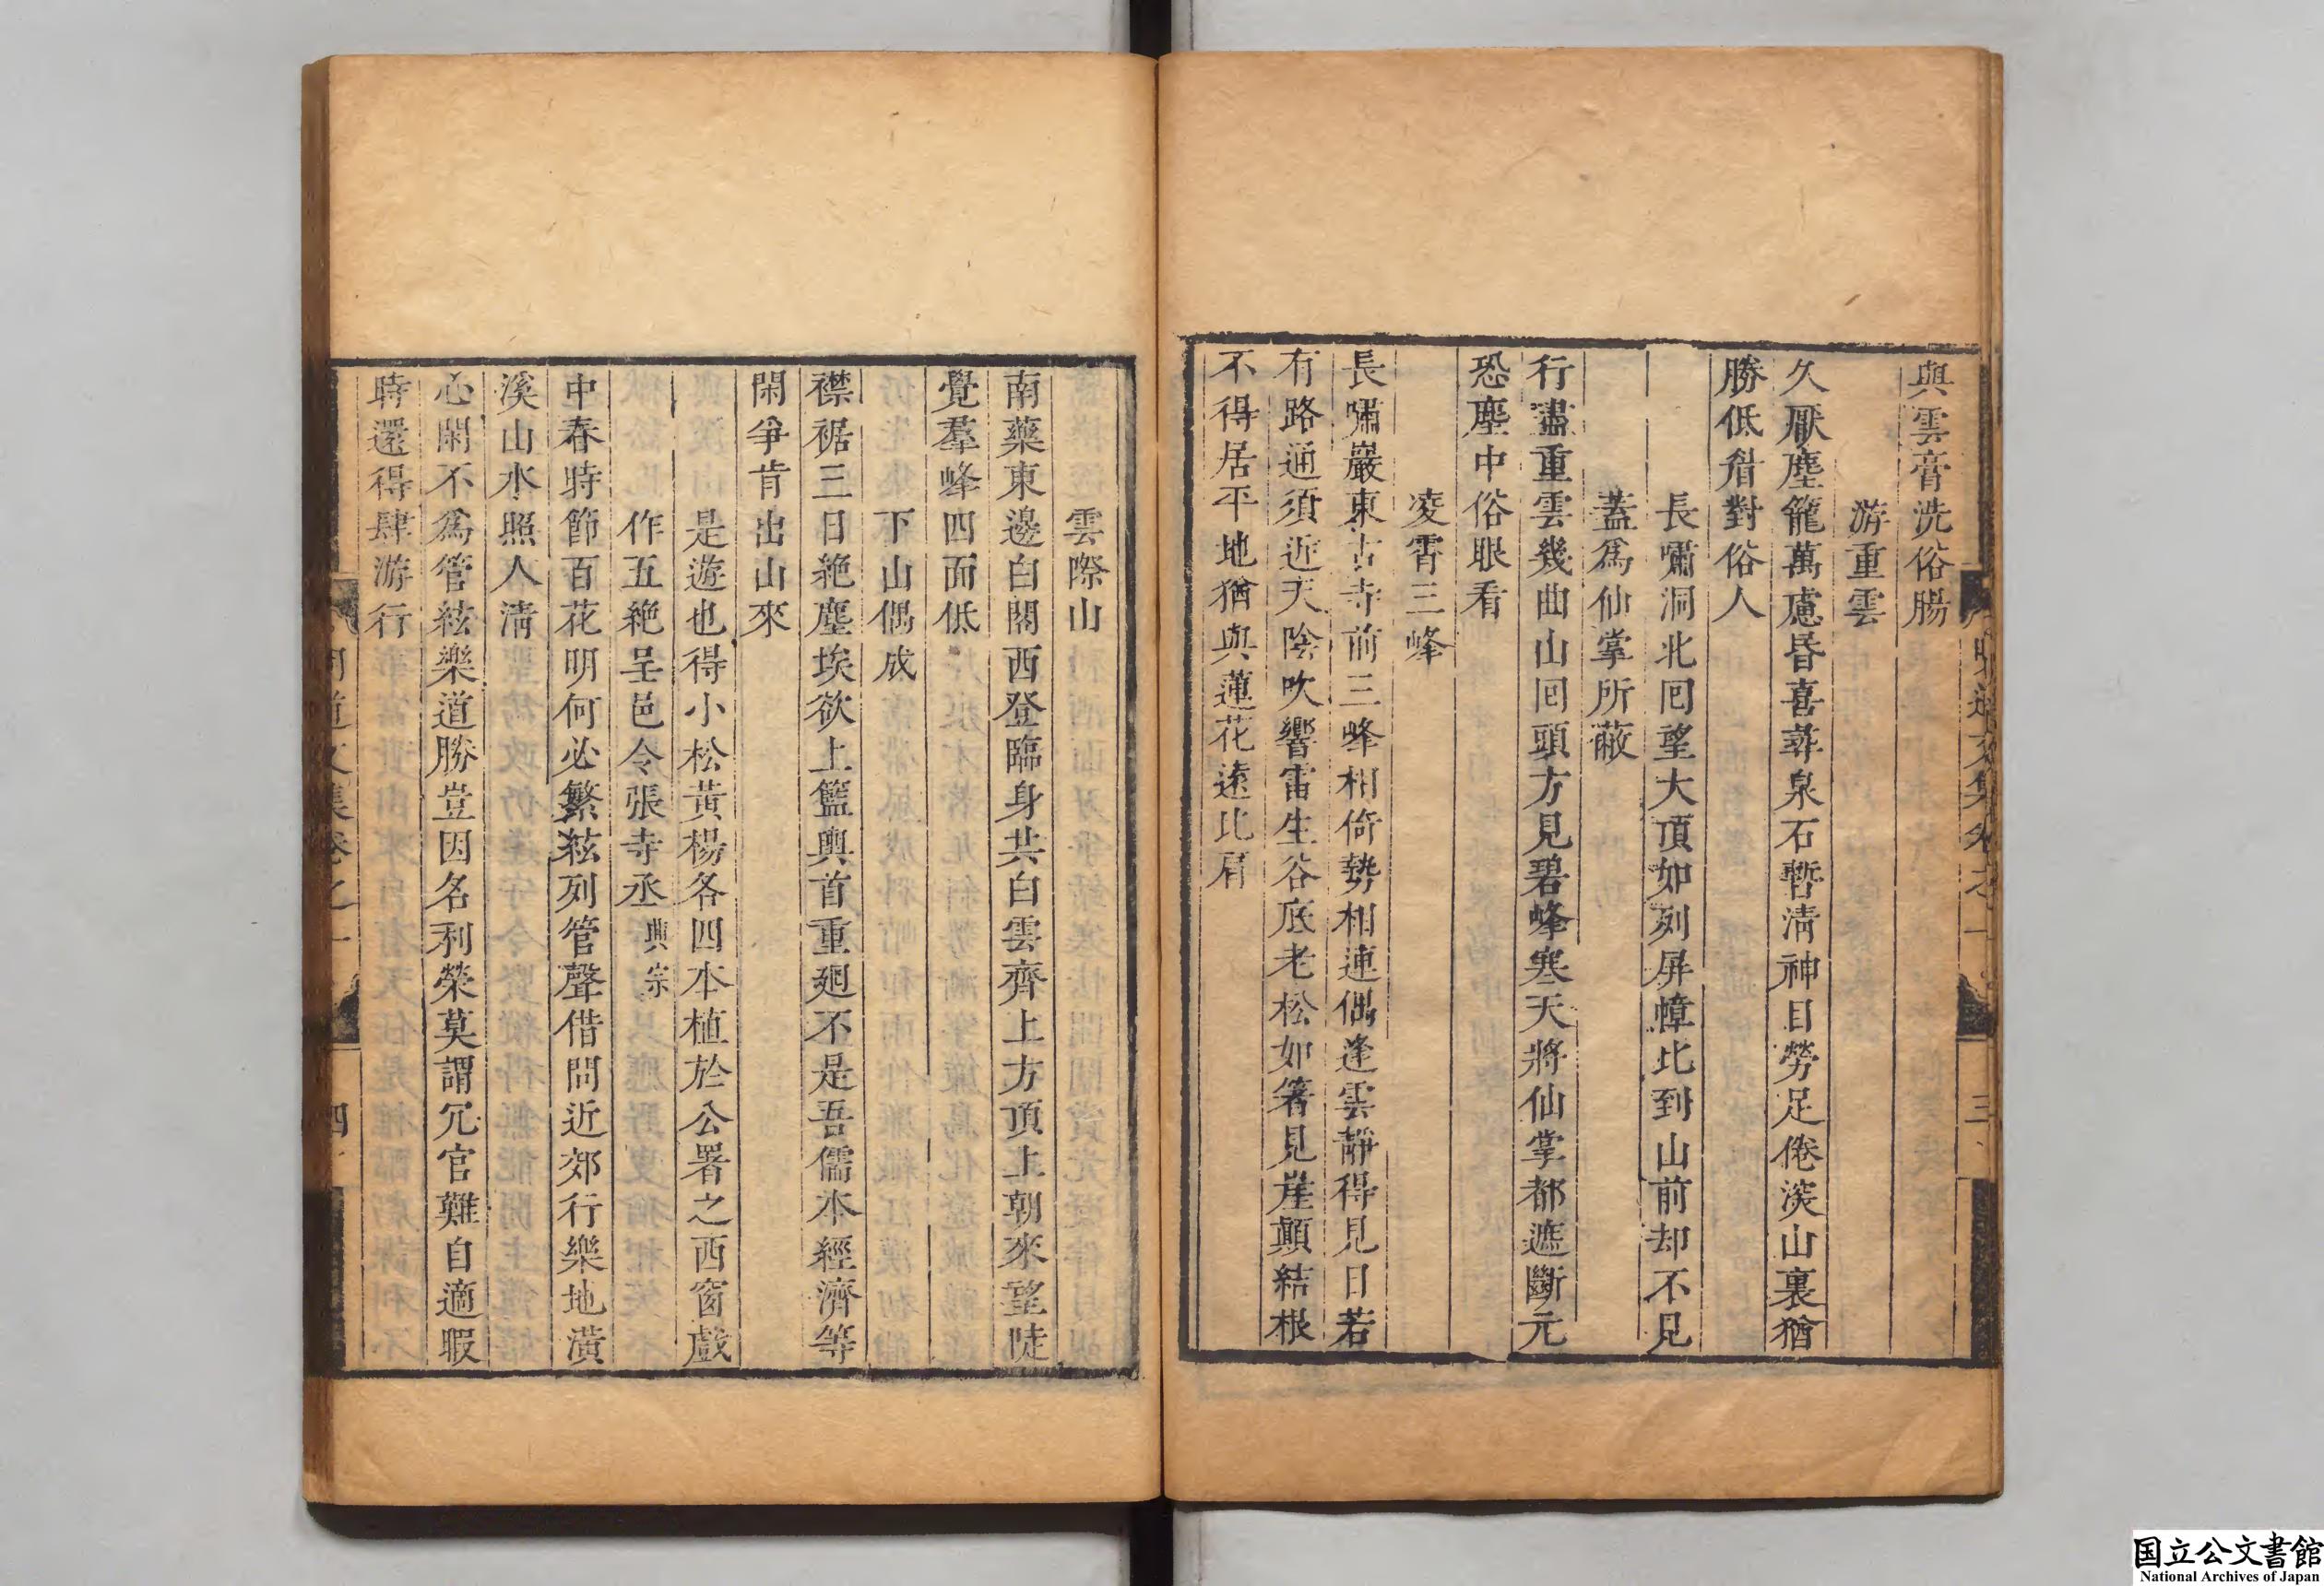 與雲膏洗俗腸
游重雲
久厭塵籠萬慮昏喜尋泉石暫清神目勞足倦淡山裏猶
勝低眉對俗人
長嘯洞北回望大頂如列屏幛比到山前却不見
蓋爲仙掌所蔽
行盡重雲幾曲山回頭方見碧峰寒天將仙掌都遮斷元
恐塵中俗眼看
凌霄三峰
長嘯巖東古寺前三峰相倚勢相連偶逢雲靜得見日若
有路通須近天陰吹響雷生谷底老松如箸見崖顛結根
不得居平地猶與蓮花遠比肩
明道文集卷之一
三
雲際山
南藥東邊白閣西登臨身共白雲齊上方頂上朝來望陡
覺羣峰四面低
下山偶成
襟裾三日絶塵埃欲上籃輿首重廻不是吾儒本經濟等
閑爭肯出山來
是遊也得小松黄楊各四本植於公署之西窗戲
作五絶呈邑令張寺丞興宗
中春時節百花明何必繁絃列管聲借問近郊行樂地潢
溪山水照人清
心閑不爲管絃樂道勝豈因名利榮莫謂冗官難自適暇
時還得肆游行
明道文集卷之一
四
国立公文書館
National Archives of Japan